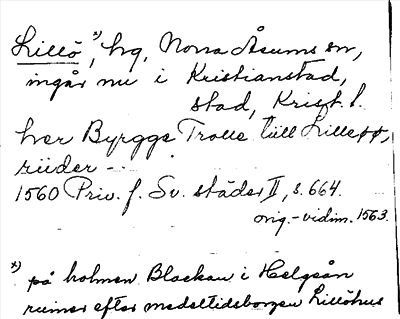 Lillö *), hg, Norra Åsums sn,
ingår nu i Kristianstad,
stad, Krist. l.
her Byrgge Trolle tiill Lilleøø,
riider -
1560 Priv. f. Sv. städer II, s. 664.
orig.-vidim. 1563.
*) på holmen Blackan i Helgeån
ruiner efter medeltidsborgen Lillöhus